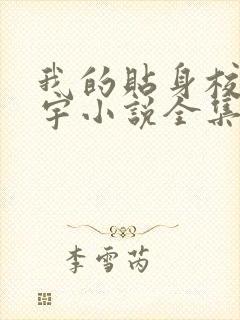 我的贴身校
宇小说全集
李雪芮